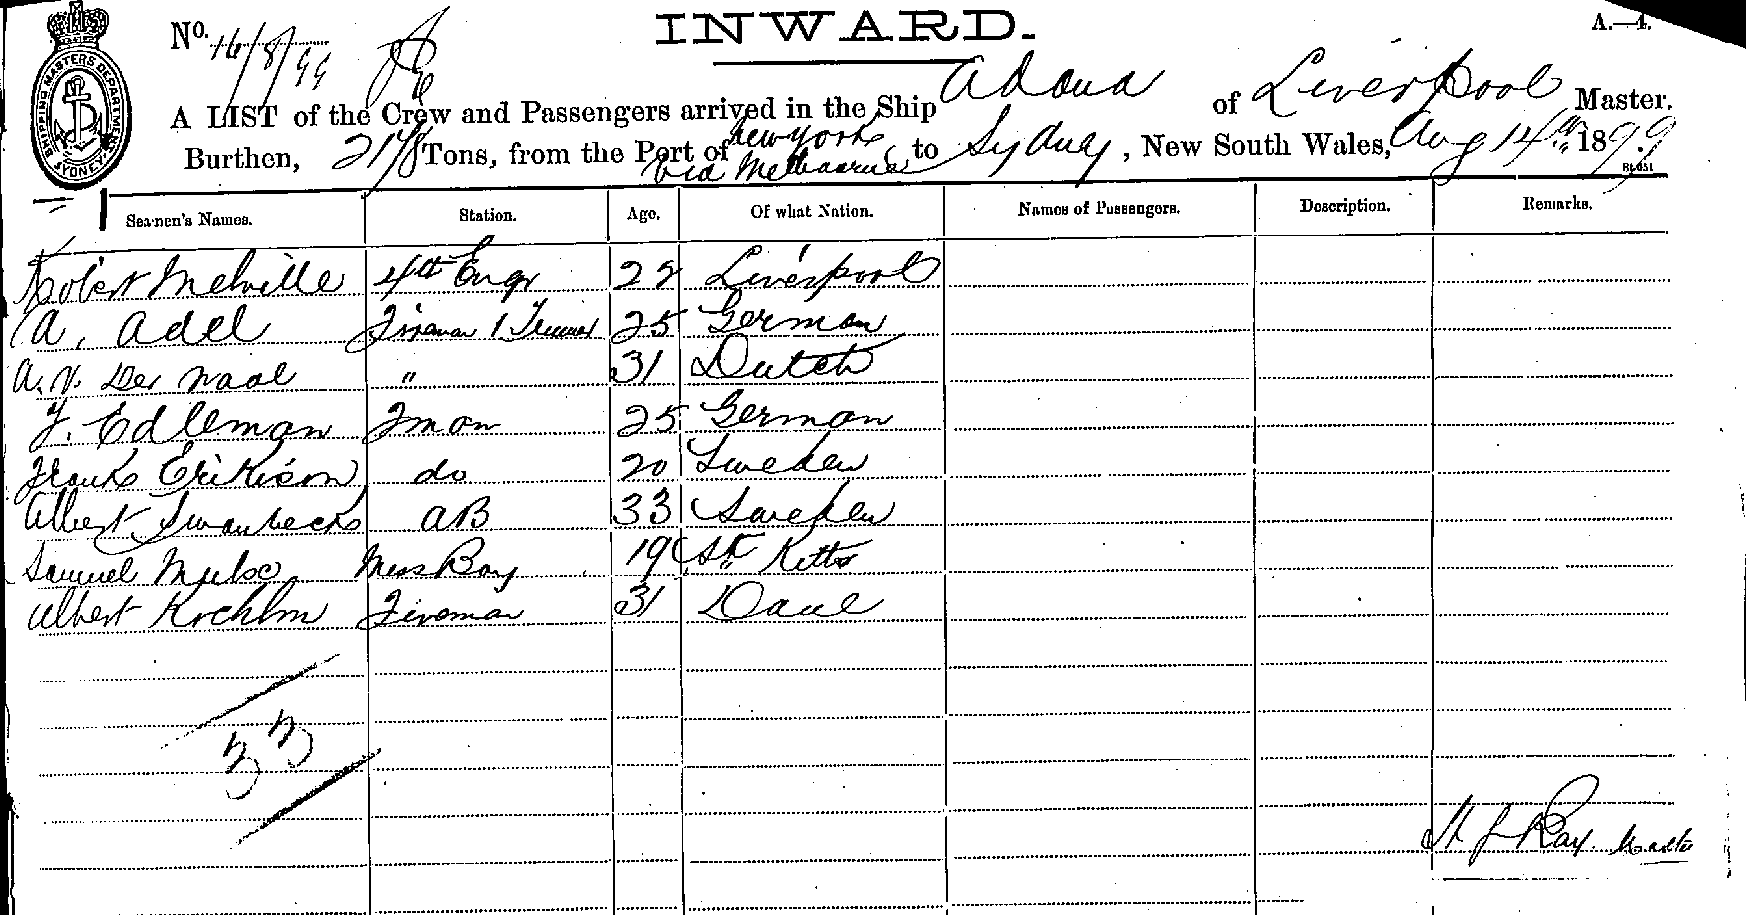 SHIPPING MASTERS DEPARTMENT SYDNEY
No. 16/8/99
INWARD.
A.—4.
A LIST of the Crew and Passengers arrived in the Ship Adana of Liverpool Master.
Burthen, 2178 Tons, from the Port of New York via Melbourne to Sydney, New South Wales, Aug 14th 1899
Seamen's Names. Station. Age. Of what Nation. Names of Passengers. Description. Remarks.
Robert Melville 4th Engr 22 Liverpool
A. Adel Fireman / Trimmer 25 German
A. V. Der Waal " 31 Dutch
F. Edleman Fman 25 German
Frank Erikison do 20 Sweden
Albert Swanbeck AB 33 Sweden
Samuel Mess Boy 19 St Kitts
Albert Fireman 31 Dane
33
Ray Master